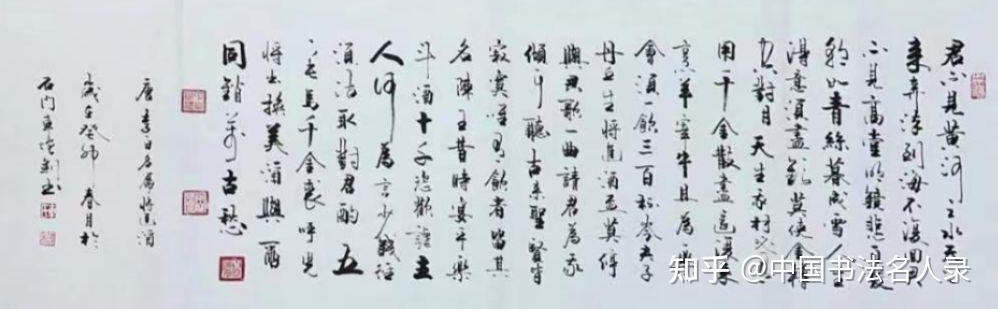 君不見黃河之水天
来奔流到海不復回君
不見高堂明鏡悲白髮
朝如青絲暮成雪人生
得意須盡歡莫使金樽
空對月天生我材必有
用千金散盡還復來
烹羊宰牛且為樂
會須一飲三百杯岑夫子
丹丘生將進酒莫停
與君歌一曲請君為我
傾耳聽古来聖賢皆
寂寞唯有飲者留其
名陳王昔時宴平樂
斗酒十千恣歡謔主
人何為言少錢徑
須沽取對君酌五
花馬千金裘呼兒
將出換美酒與爾
同銷萬古愁
唐李白名篇將進酒
歲在癸卯春月於
石門書
知乎 @中国书法名人录